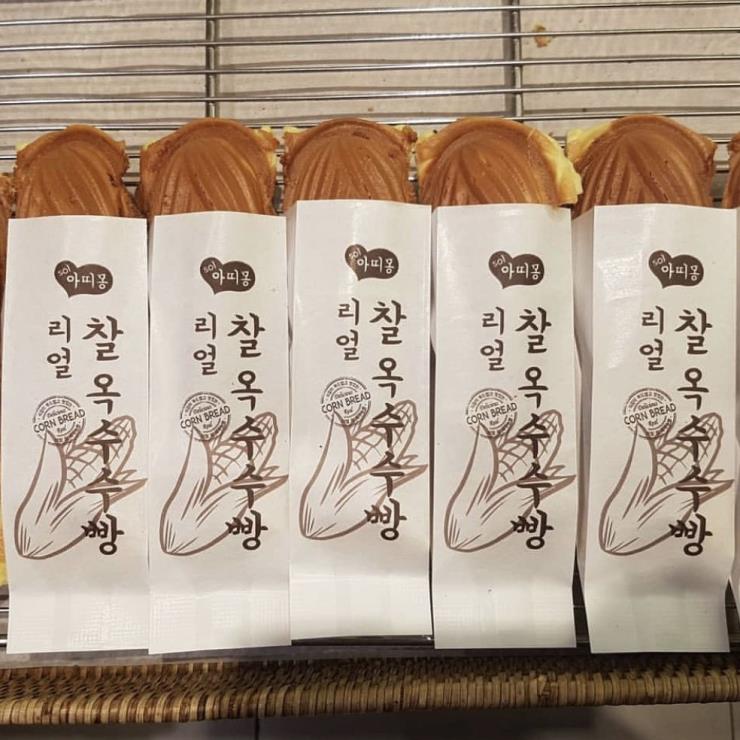 sol 아띠몽
리얼
찰옥수수빵
Delicious
CORN BREAD
Real
sol 아띠몽
리얼
찰옥수수빵
Delicious
CORN BREAD
Real
sol 아띠몽
리얼
찰옥수수빵
Delicious
CORN BREAD
Real
sol 아띠몽
리얼
찰옥수수빵
Delicious
CORN BREAD
Real
sol 아띠몽
리얼
찰옥수수빵
Delicious
CORN BREAD
Real